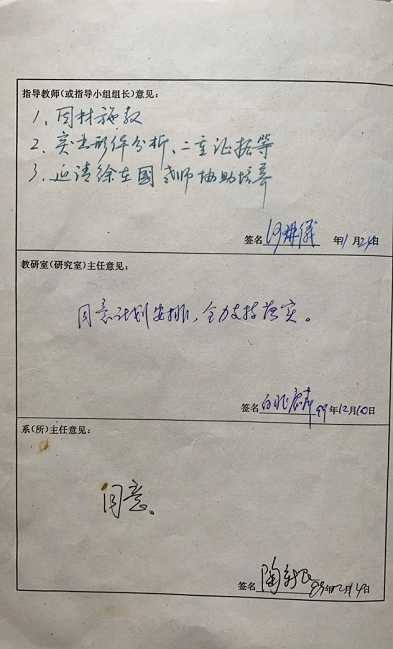 指导教师(或指导小组组长)意见:
1、因材施教
2、突出形体分析、二重证据等
3、延请徐在國老师协助培养
签名 何琳儀 年1月24日
教研室(研究室)主任意见:
同意计划安排,全力支持落实。
签名 白兆麟 99年12月10日
系(所)主任意见:
同意。
签名 陶新民 99年12月14日